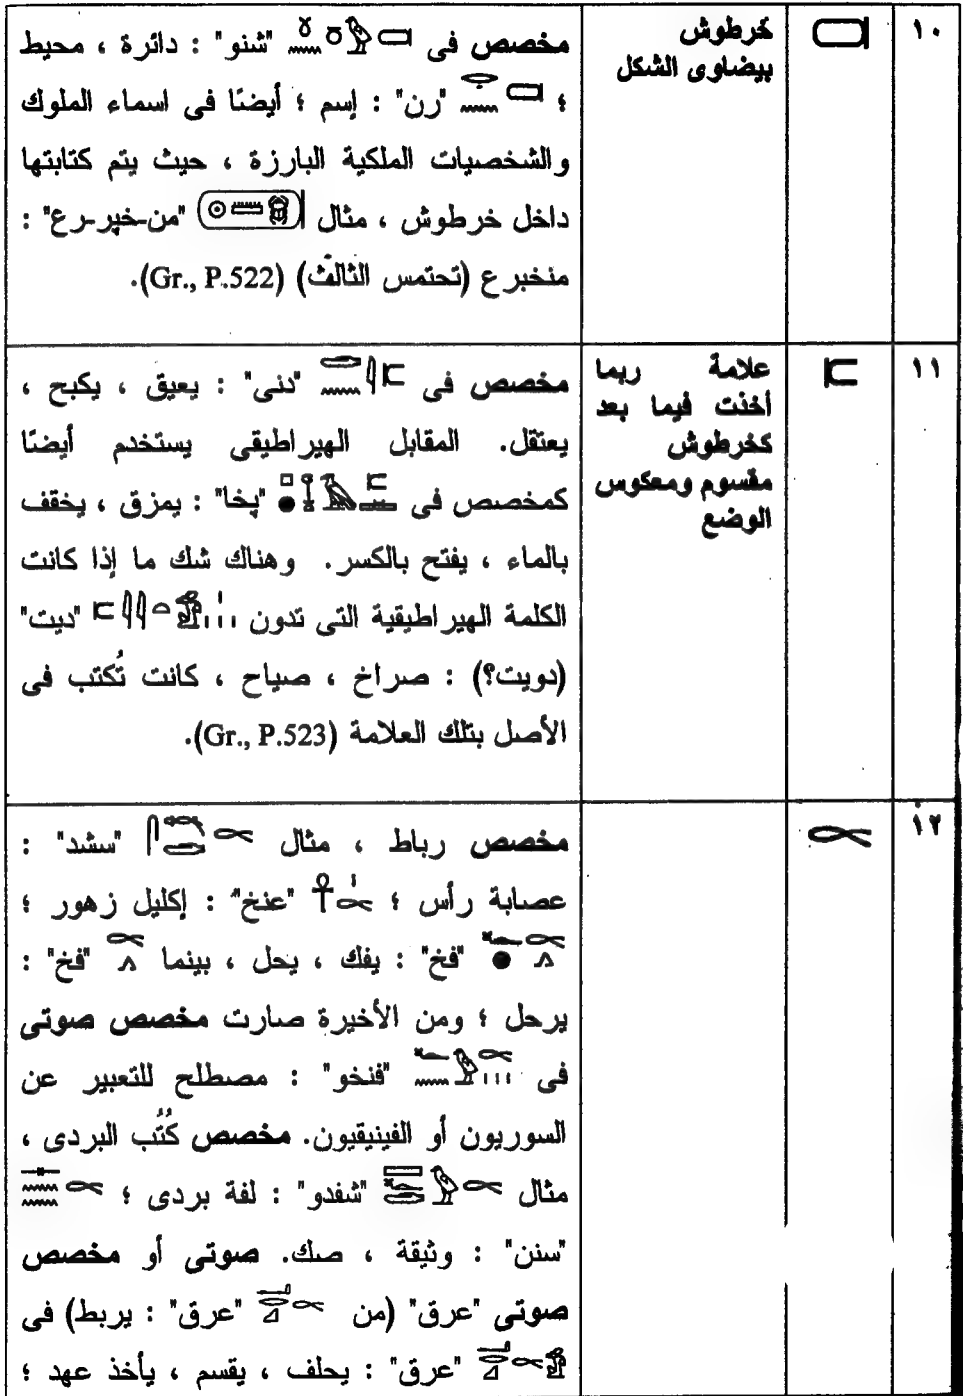 ١٠
خرطوش
بيضاوى الشكل
مخصص فى "شنو" : دائرة ، محيط
؛ "رن" : إسم ؛ أيضنًا فى اسماء الملوك
والشخصيات الملكية البارزة ، حيث يتم كتابتها
داخل خرطوش ، مثال "من-خپر-رع" :
منخبرع (تحتمس الثالث) (Gr., P.522).
١١
علامة ربما
أخذت فيما بعد
كخرطوش
مقسوم ومعكوس
الوضع
مخصص فى "دنى" : يعيق ، يكبح ،
يعتقل. المقابل الهيراطيقى يستخدم أيضنًا
كمخصص فى "پخا" : يمزق ، يخقف
بالماء ، يفتح بالكسر. وهناك شك ما إذا كانت
الكلمة الهيراطيقية التى تدون "ديت"
(دويت؟) : صراخ ، صياح ، كانت تُكتب فى
الأصل بتلك العلامة (Gr., P.523).
١٢
مخصص رباط ، مثال "سشد" :
عصابة رأس ؛ "عنخ" : إكليل زهور ؛
"فخ" : يفك ، يحل ، بينما "فخ" :
يرحل ؛ ومن الأخيرة صارت مخصص صوتى
فى "فنخو" : مصطلح للتعبير عن
السوريون أو الفينيقيون. مخصص كُتُب البردى ،
مثال "شفدو" : لفة بردى ؛
"سنن" : وثيقة ، صك. صوتى أو مخصص
صوتى "عرق" (من "عرق" : يربط) فى
"عرق" : يحلف ، يقسم ، يأخذ عهد ؛